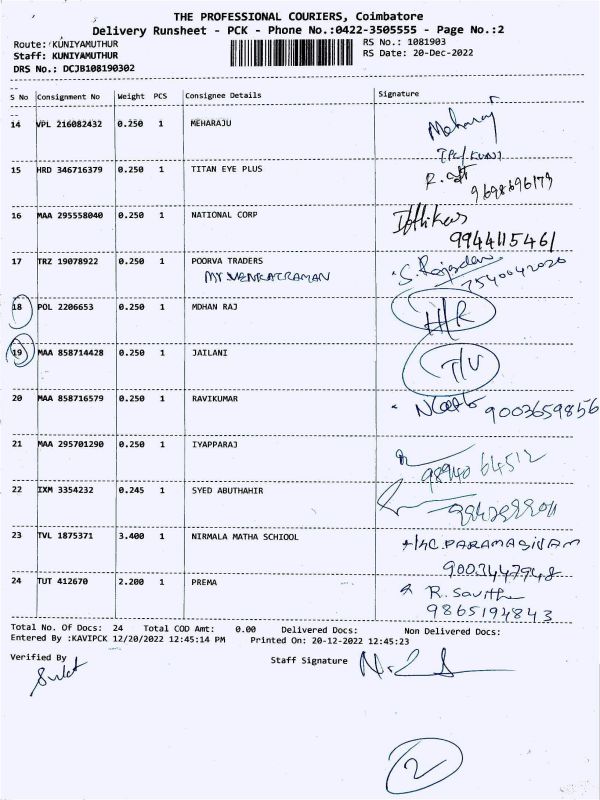 THE PROFESSIONAL COURIERS, Coimbatore
Delivery Runsheet - PCK - Phone No.:0422-3505555 - Page No.:2
Route: KUNIYAMUTHUR RS No.: 1081903
Staff: KUNIYAMUTHUR RS Date: 20-Dec-2022
DRS No.: DCJB108190302
S No Consignment No Weight PCS Consignee Details Signature
14 VPL 216082432 0.250 1 MEHARAJU Meharaj
15 HRD 346716379 0.250 1 TITAN EYE PLUS R.
9698696179
16 MAA 295558040 0.250 1 NATIONAL CORP
9944115461
17 TRZ 19078922 0.250 1 POORVA TRADERS S.
Mr VENKATRAMAN 7540042020
18 POL 2206653 0.250 1 MDHAN RAJ H/R
19 MAA 858714428 0.250 1 JAILANI T/U
20 MAA 858716579 0.250 1 RAVIKUMAR 9003659856
21 MAA 295701290 0.250 1 IYAPPARAJ
9894064512
22 IXM 3354232 0.245 1 SYED ABUTHAHIR
23 TVL 1875371 3.400 1 NIRMALA MATHA SCHIOOL PARAMASIVAM
9003447948
24 TUT 412670 2.200 1 PREMA R. Savitha
9865194843
Total No. Of Docs: 24 Total COD Amt: 0.00 Delivered Docs: Non Delivered Docs:
Entered By :KAVIPCK 12/20/2022 12:45:14 PM Printed On: 20-12-2022 12:45:23
Verified By Staff Signature
2